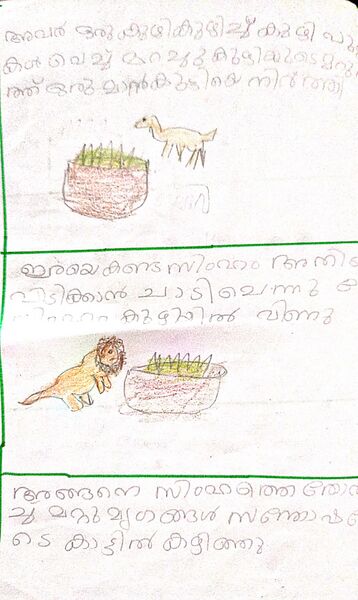 അവർ ഒരു കുഴികുഴിച്ചു കുഴി പു
കൾ വെച്ച് മറച്ചു കുഴിയുടെ മറു
ത്ത് ഒരു മാൻകുട്ടിയെ നിർത്തി
ഇരയെ കണ്ട സിംഹം അതി
പിടിക്കാൻ ചാടിവെന്നു
സിംഹം കുഴിയിൽ വീണു
അങ്ങനെ സിംഹത്തെ തോൽ
ച്ചു മറ്റു മൃഗങ്ങൾ സന്തോഷ
ടെ കാട്ടിൽ കഴിഞ്ഞു